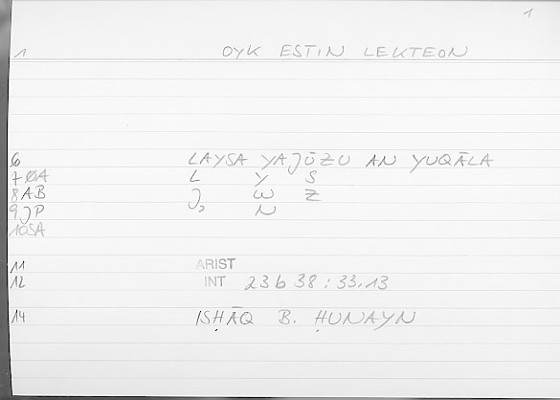 1
1 OYK ESTIN LEKTEON
6 LAYSA YAJŪZU AN YUQĀLA
7 ØA L Y S
8 AB J, W Z
9 JP N
10 SA
11 ARIST
12 INT 23b 38 : 33,13
14 ISḤĀQ B. ḤUNAYN